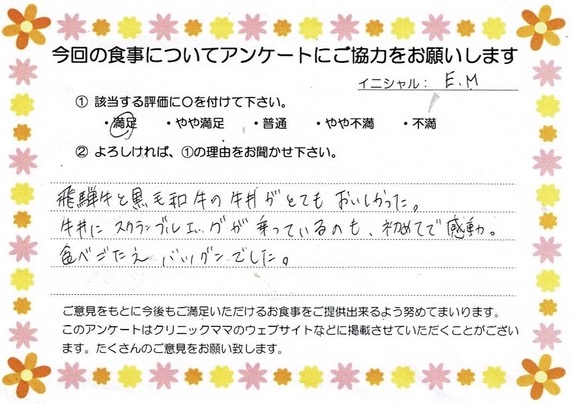 今回の食事についてアンケートにご協力をお願いします
イニシャル： E.M
① 該当する評価に○を付けて下さい。
・満足 ・やや満足 ・普通 ・やや不満 ・不満
② よろしければ、①の理由をお聞かせ下さい。
飛騨牛と黒毛和牛の牛丼がとてもおいしかった。
牛丼にスクランブルエッグが乗っているのも、初めてで感動。
食べごたえバツグンでした。
ご意見をもとに今後もご満足いただけるお食事をご提供出来るよう努めてまいります。
このアンケートはクリニックママのウェブサイトなどに掲載させていただくことがござい
ます。たくさんのご意見をお願い致します。